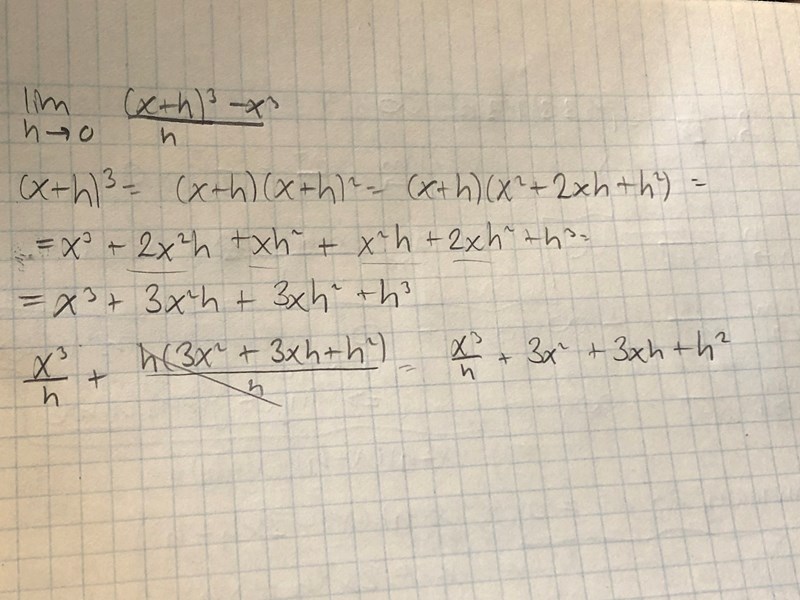 lim (x+h)³ - x³
h→0 h
(x+h)³ = (x+h)(x+h)² = (x+h)(x² + 2xh + h²) =
= x³ + 2x²h + xh² + x²h + 2xh² + h³ =
= x³ + 3x²h + 3xh² + h³
x³/h + h(3x² + 3xh + h²)/h = x³/h + 3x² + 3xh + h²